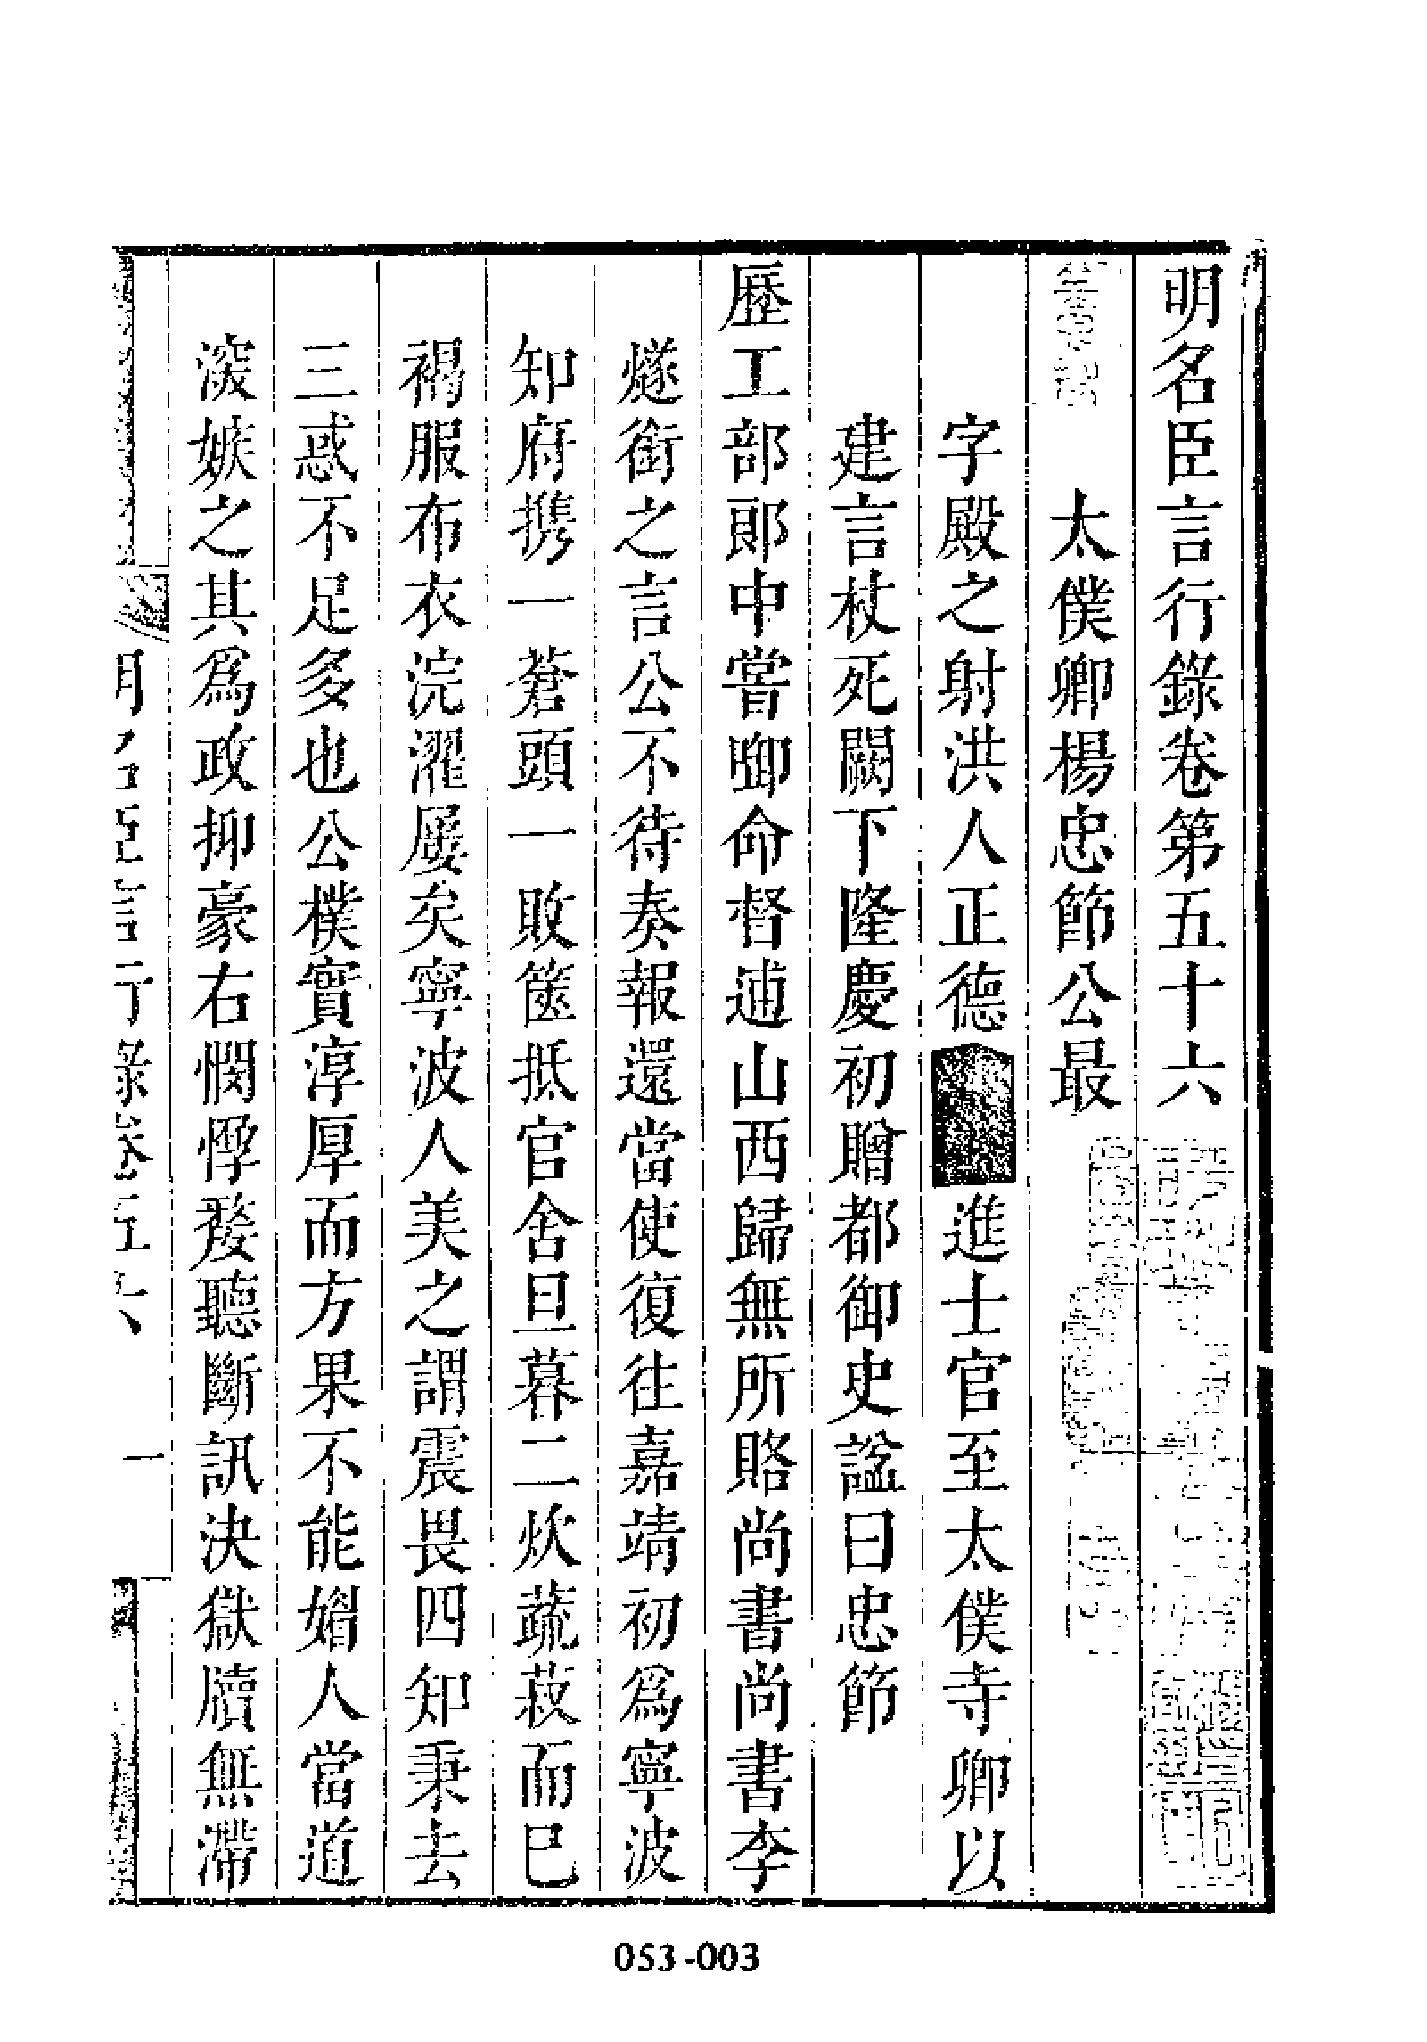 明名臣言行錄卷第五十六
太僕卿楊忠節公最
字殿之射洪人正德進士官至太僕寺卿以
建言杖死闕下隆慶初贈都御史諡曰忠節
歷工部郎中嘗啣命督逋山西歸無所賂尚書尚書李
燧銜之言公不待奏報還當使復往嘉靖初爲寧波
知府携一蒼頭一敗篋抵官舍旦暮二炊蔬菽而已
褐服布衣浣濯屡矣寧波人美之謂震畏四知秉去
三惑不足多也公樸實淳厚而方果不能媚人當道
深嫉之其爲政抑豪右憫惸嫠聽斷訊決獄牘無滯
明名臣言行錄卷五六
一
053-003